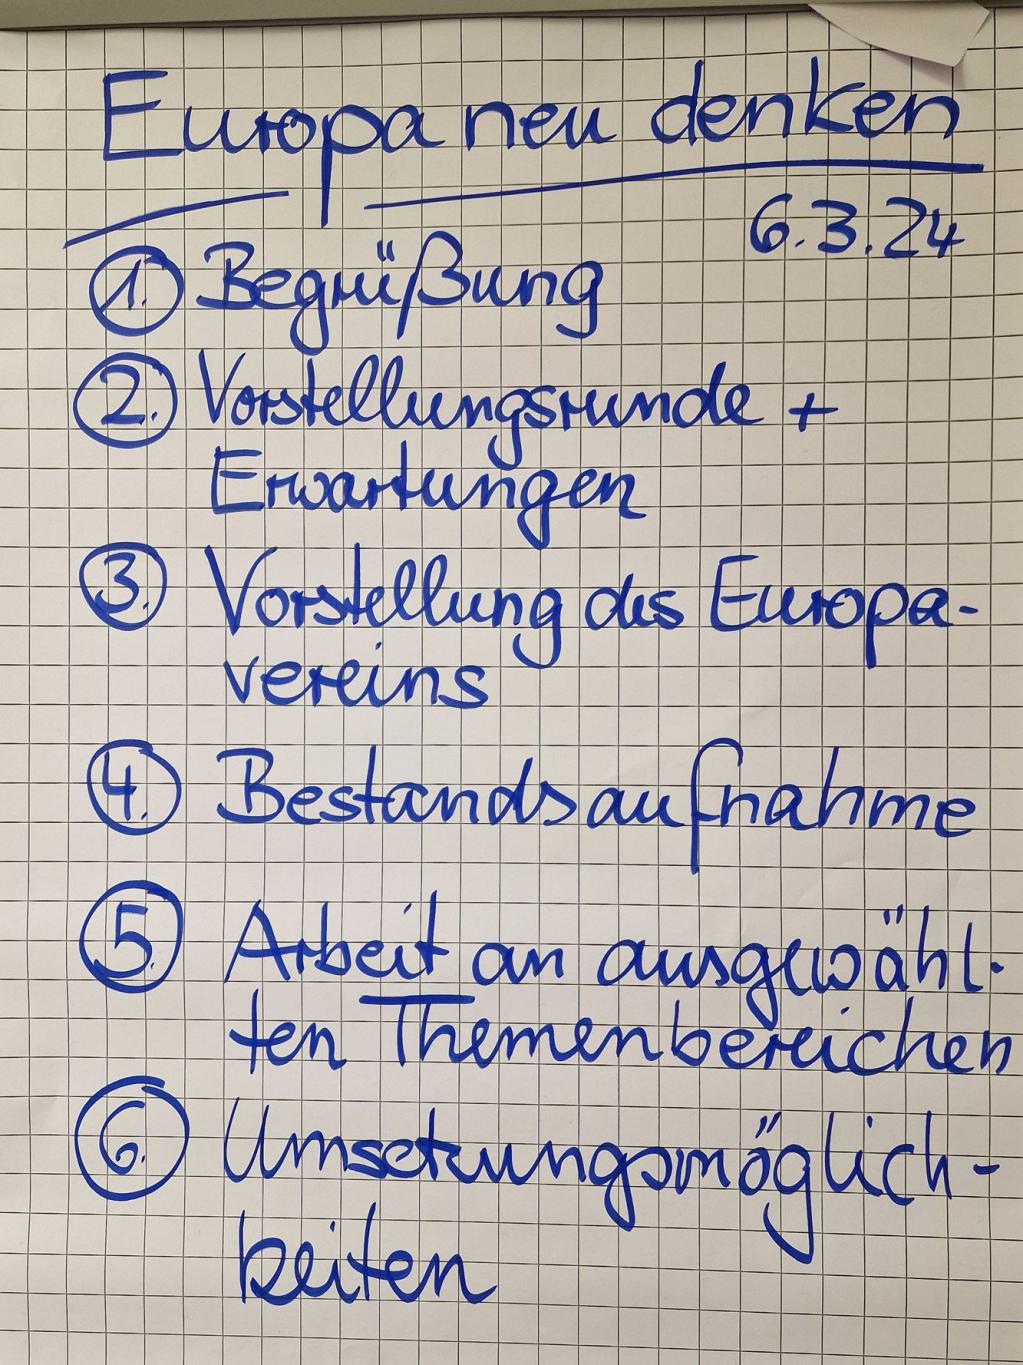 Europa neu denken
6.3.24
1. Begrüßung
2. Vorstellungsrunde +
Erwartungen
3. Vorstellung des Europa-
vereins
4. Bestandsaufnahme
5. Arbeit an ausgewähl-
ten Themenbereichen
6. Umsetzungsmöglich-
keiten